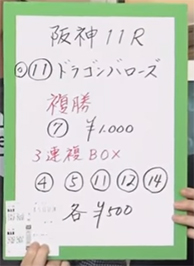 阪神11R
◎⑪ドラゴンバローズ
複勝
⑦ ¥1.000
3連複BOX
④ ⑤ ⑪ ⑫ ⑭
各¥500